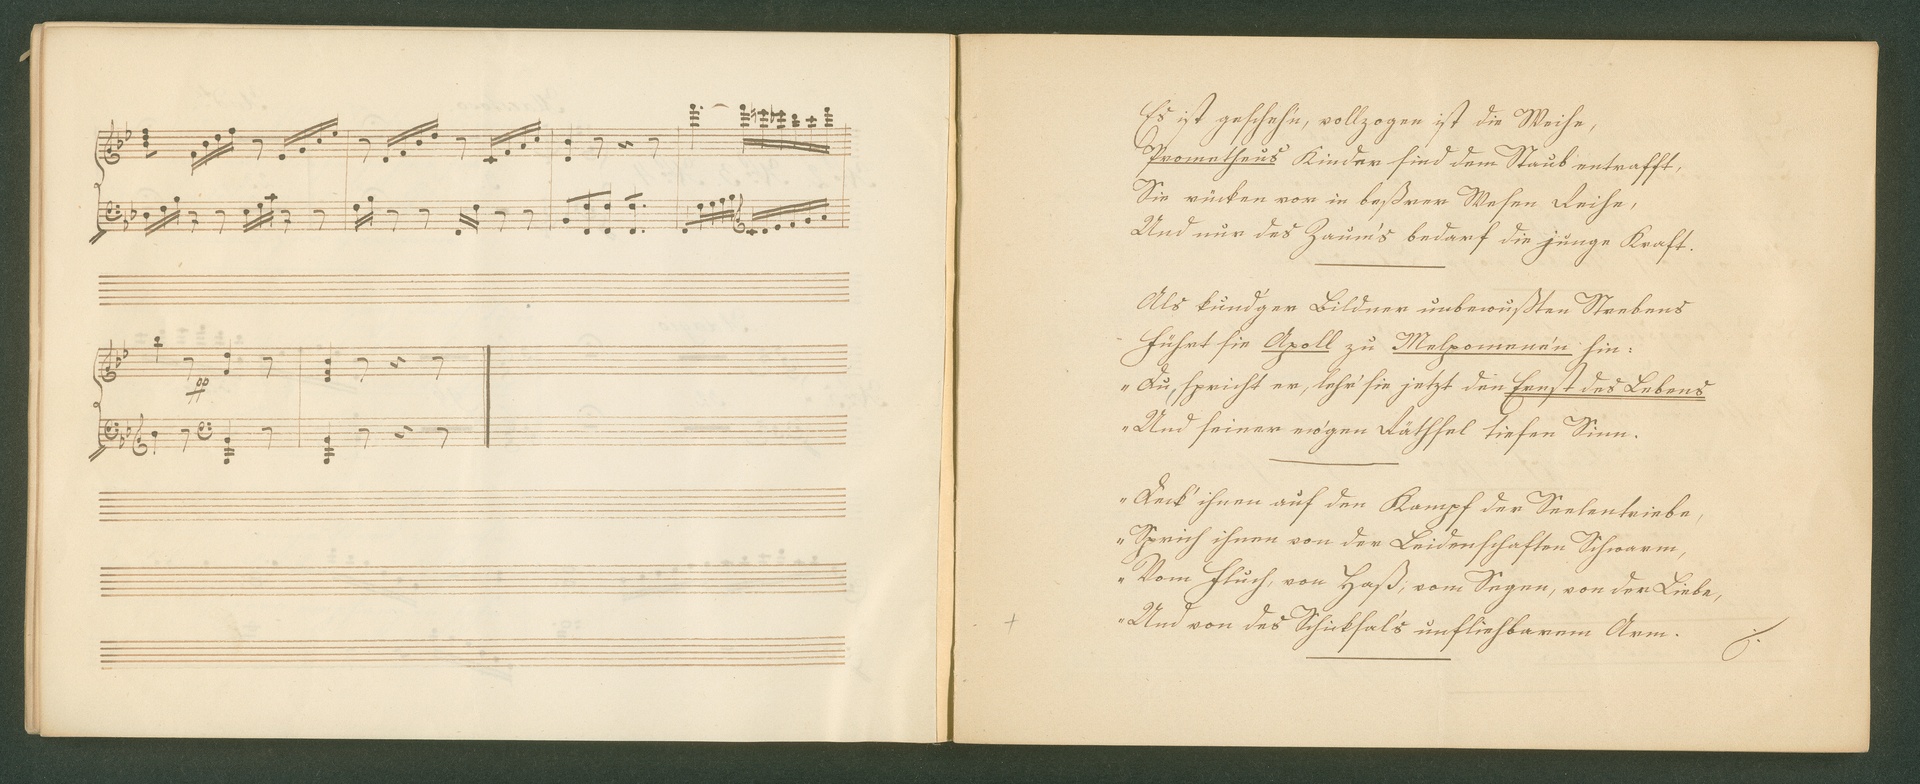 pp
Es ist geschehn, vollzogen ist die Weihe,
Prometheus Kinder sind dem Staub entrafft,
Sie rücken vor in beßrer Wesen Reihe,
Und nur des Zaum's bedarf die junge Kraft.
Als kund'ger Bildner unbewußten Strebens
Führt sie Apoll zu Melpomene'n hin:
"Du, spricht er, lehr' sie jetzt den Ernst des Lebens
"Und seiner ew'gen Räthsel tiefen Sinn.
"Deck' ihnen auf den Kampf der Seelentriebe,
"Sprich ihnen von der Leidenschaften Schwarm,
"Vom Fluch, von Haß, vom Segen, von der Liebe,
"Und von des Schicksal's unfliehbarem Arm.